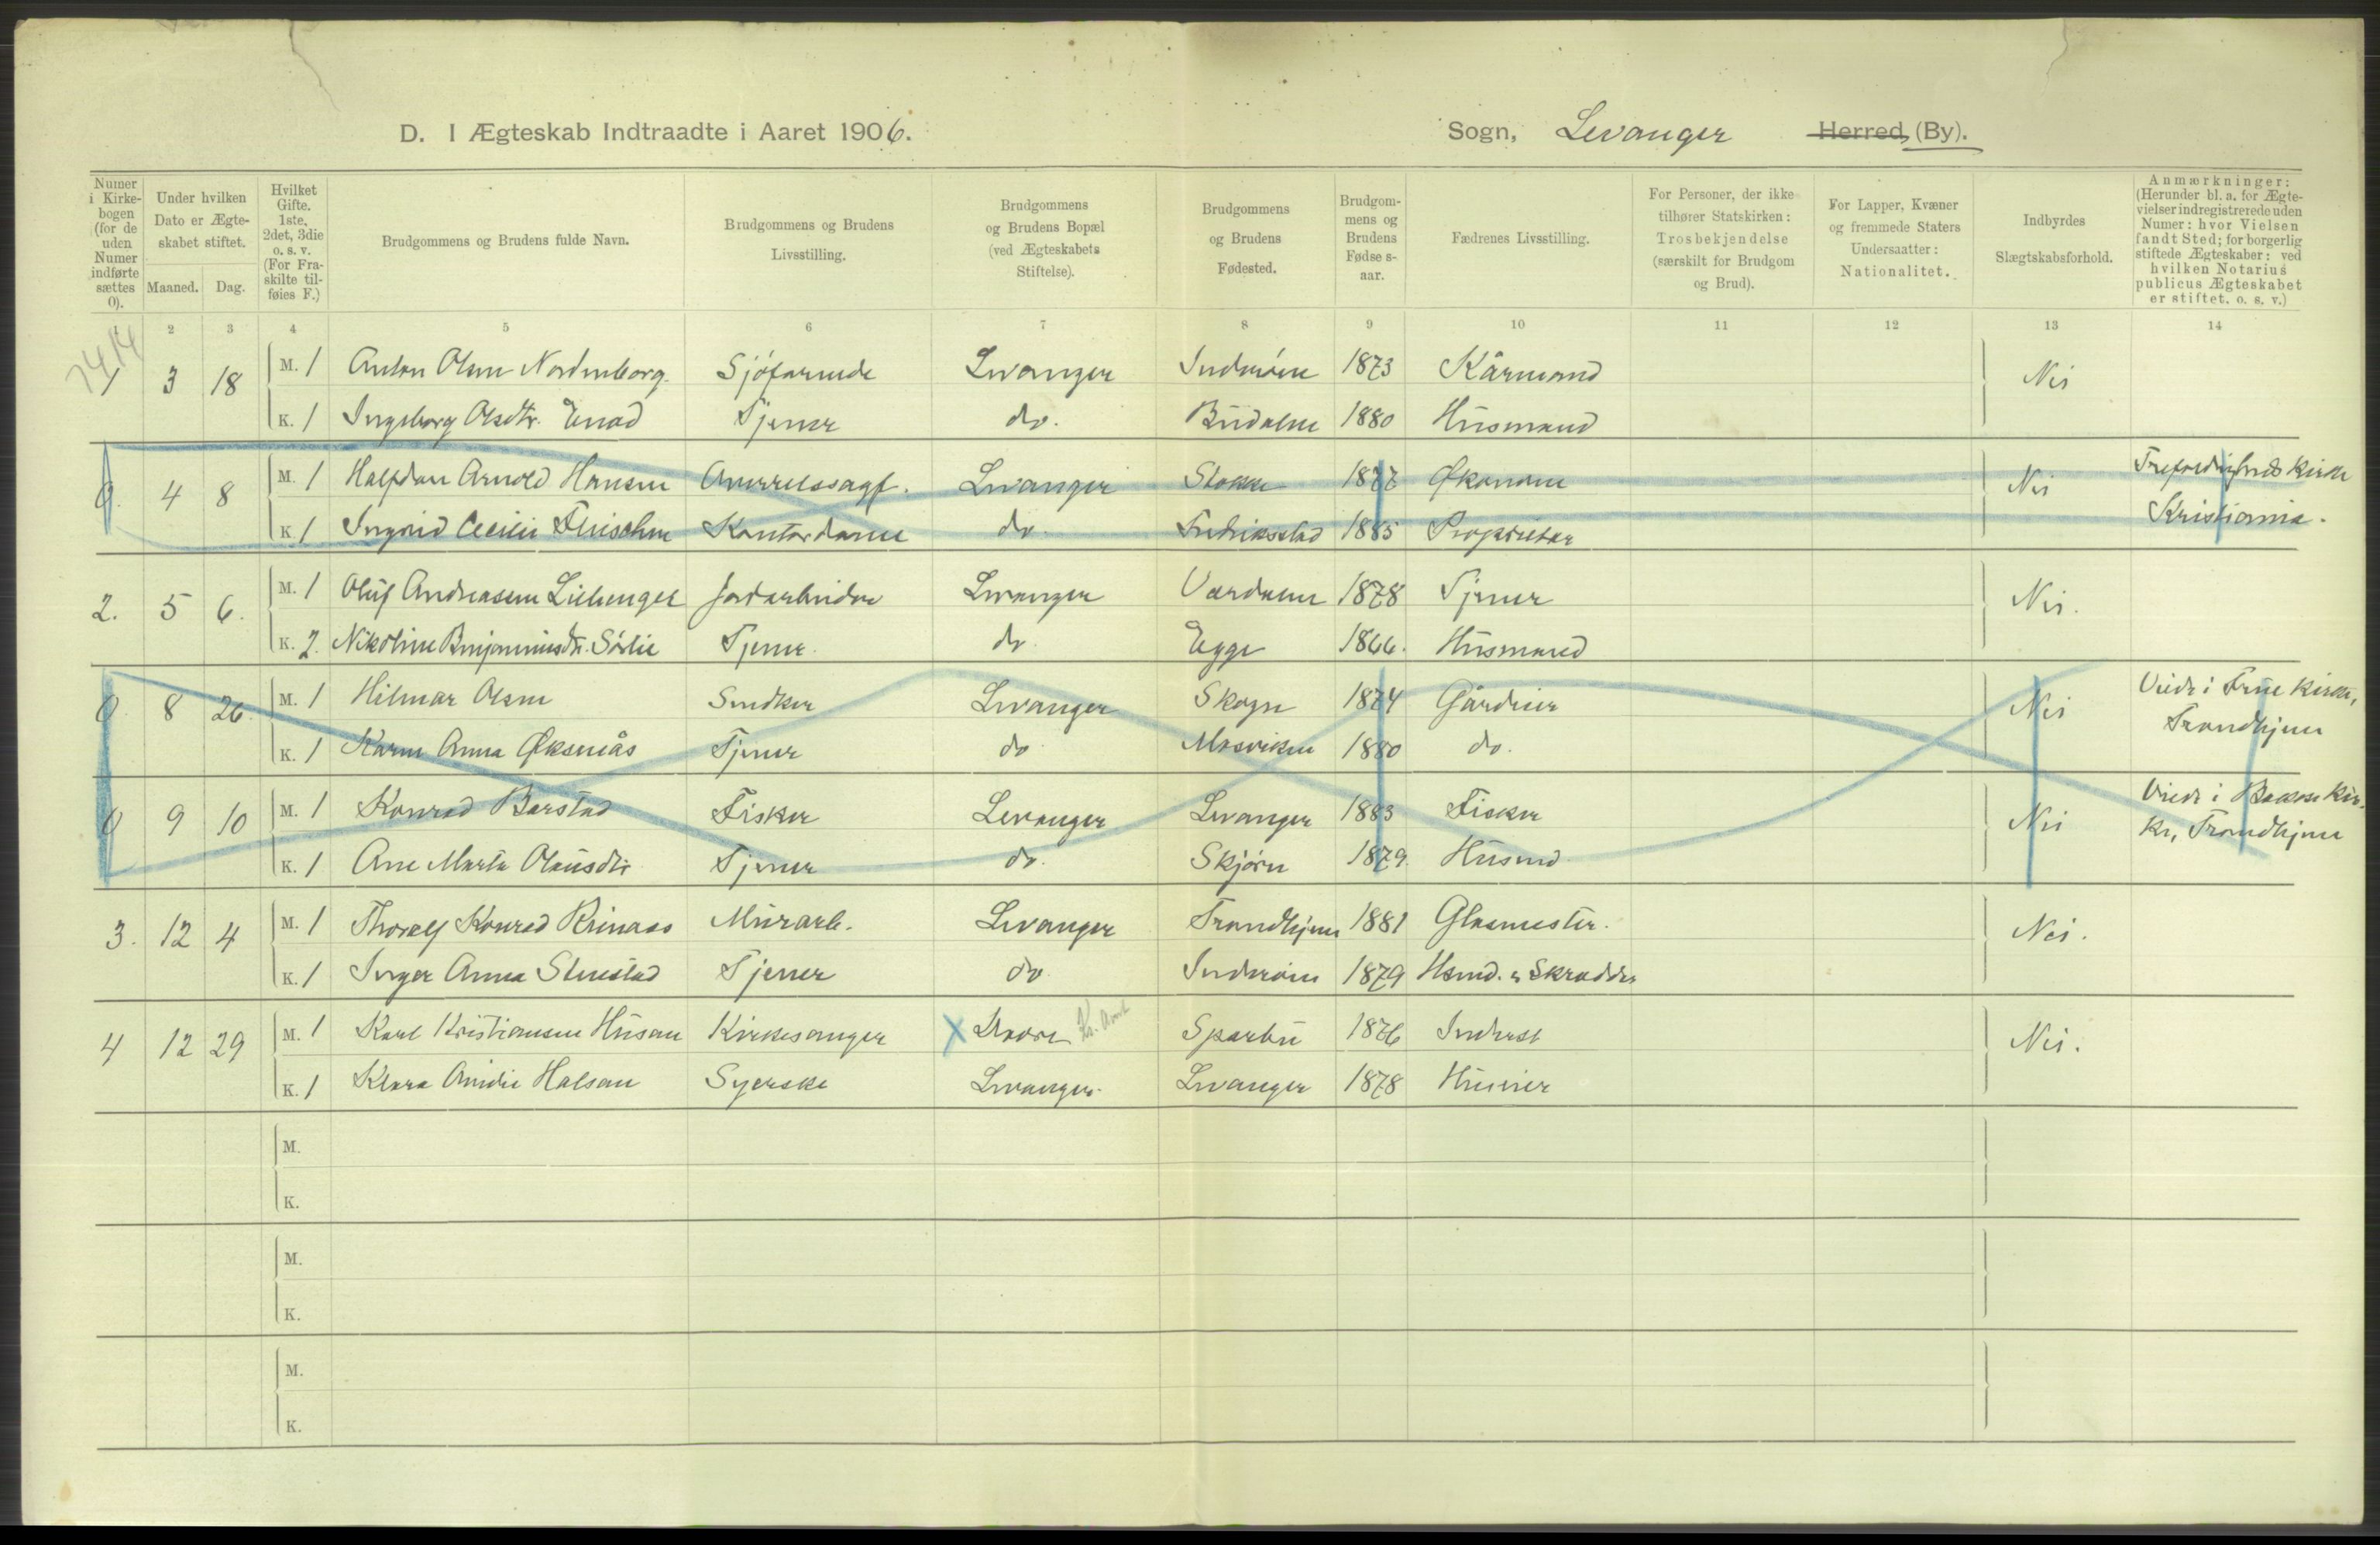 D. I Ægteskab Indtraadte i Aaret 1906. Sogn, Levanger Herred, (By).
Numer i Kirkebogen (for de uden Numer indførte sættes 0). Under hvilken Dato er Ægteskabet stiftet. Maaned. Dag. Hvilket Gifte. 1ste, 2det, 3die o. s. v. (For Fraskilte tilføies F.) Brudgommens og Brudens fulde Navn. Brudgommens og Brudens Livsstilling. Brudgommens og Brudens Bopæl (ved Ægteskabets Stiftelse). Brudgommens og Brudens Fødested. Brudgommens og Brudens Fødselsaar. Fædrenes Livsstilling. For Personer, der ikke tilhører Statskirken: Trosbekjendelse (særskilt for Brudgom og Brud). For Lapper, Kvæner og fremmede Staters Undersaatter: Nationalitet. Indbyrdes Slægtskabsforhold. Anmærkninger: (Herunder bl. a. for Ægtevielser indregistrerede uden Numer: hvor Vielsen fandt Sted; for borgerlig stiftede Ægteskaber: ved hvilken Notarius publicus Ægteskabet er stiftet. o. s. v.)
2 3 4 5 6 7 8 9 10 11 12 13 14
1 3 18 M. 1 Anton Olsen Nordenborg. Sjöfarende Levanger Inderöen 1873 Kårmand Nei
K. 1 Ingeborg Olsdtr. Tjener do. Budalen 1880 Husmand
0. 4 8 M. 1 Halfdan Arnold Hansen Levanger Stokke 1877 Økonom Nei Kirke
K. 1 Ingrid Cecilie Kontordame do Fredriksstad 1885 Proprietær Kristiania.
2. 5 6. M. 1 Oluf Andreassen Jordarbeider Levanger Værdalen 1878 Tjener Nei.
K. 2. Nikoline Benjaminsdtr. Sörlie Tjener. do Egge 1866. Husmand
0 8 26. M. 1 Hilmar Olsen Snedker Levanger Skogn 1874 Gårdeier Nei Viede i Frue Kirke,
K. 1 Karen Anna Øksnås Tjener do Mosviken 1880 do. Trondhjem
0 9 10 M. 1 Konrad Barstad Fisker Levanger Levanger 1883 Fisker Nei Viede i Bakke Kir-
K. 1 Ane Marta Olausdtr Tjener do. Skjörn 1879. Husmd. ke, Trondhjem
3. 12 4 M. 1 Thoralf Konrad Reinaas Murarb. Levanger Trondhjem 1881 Glasmester. Nei.
K. 1 Inger Anna Stenstad Tjener do Inderöen 1879 Hsmd. & Skrædder
4 12 29 M. 1 Karl Kristiansen Husan Kirkesanger X Sparbu 1876 Inderst Nei.
K. 1 Klara Amalie Halsan Syerske Levanger. Levanger 1878 Huseier
M.
K.
M.
K.
M.
K.